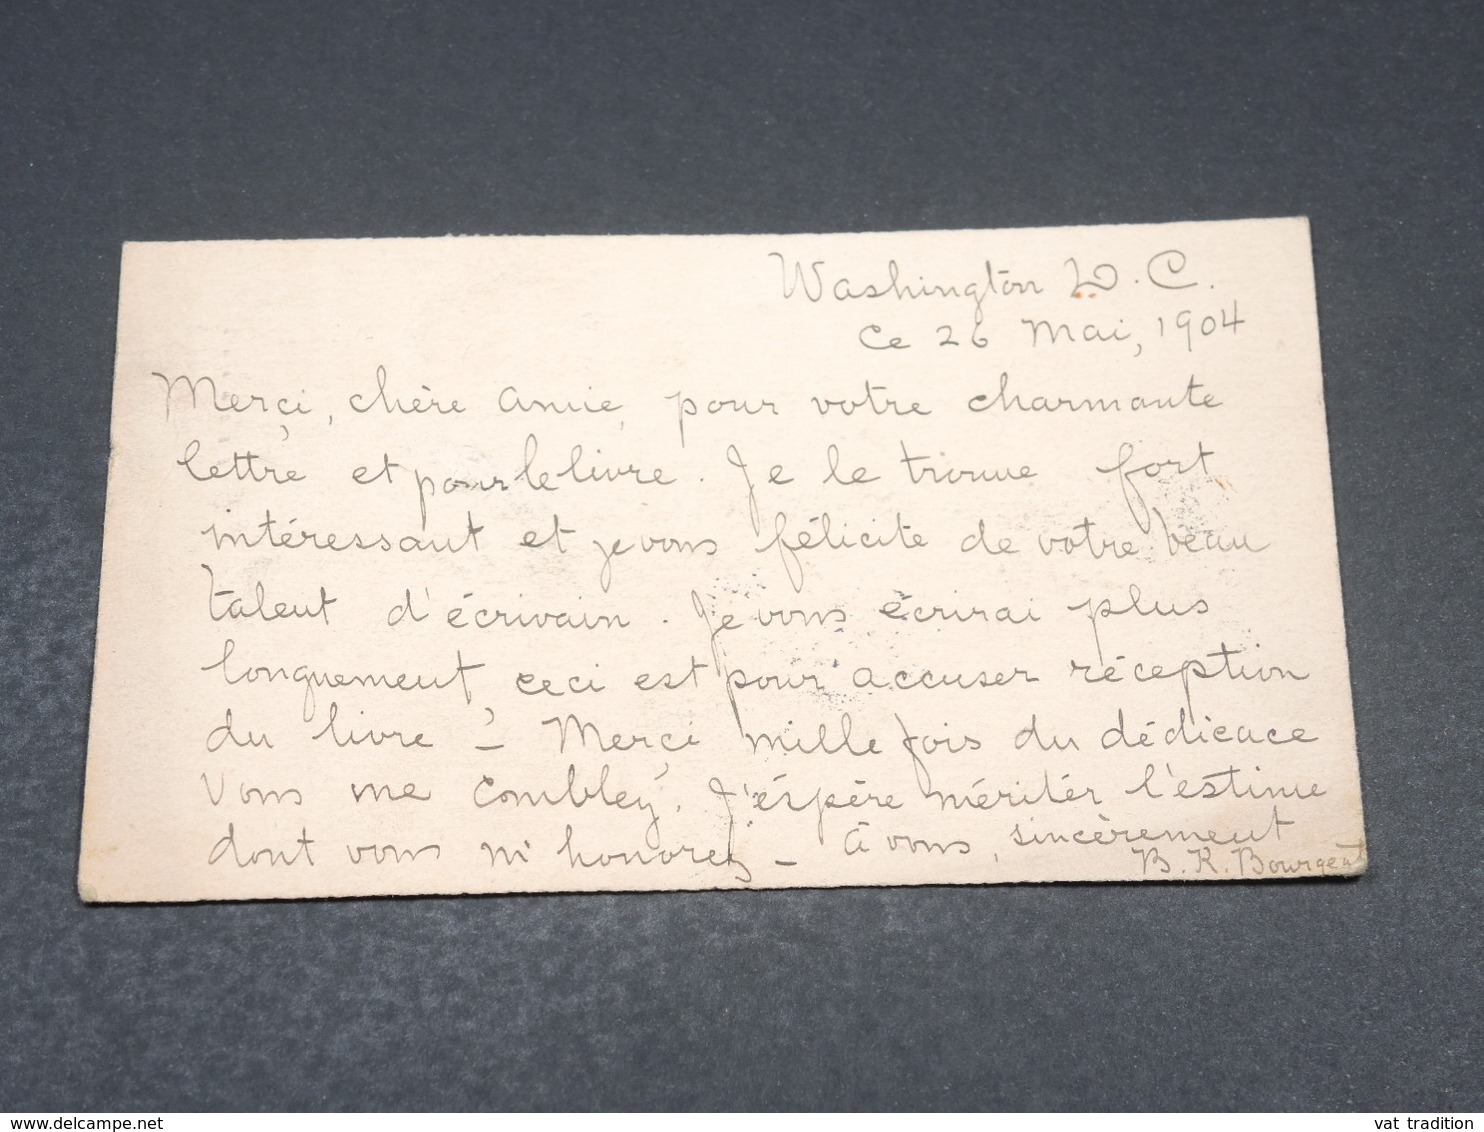 Washington D.C.
Ce 26 Mai, 1904
Merçi, chère amie, pour votre charmante
lettre et pour le livre. Je le trouve fort
intéressant et je vous félicite de votre beau
talent d'écrivain. Je vous écrirai plus
longuement, ceci est pour accuser réception
du livre - Merçi mille fois du dédicace
Vous me comblez. J'éspère mériter l'estime
dont vous m'honorez - à vous, sincèrement
B. R. Bourgeat
www.delcampe.net
vat tradition